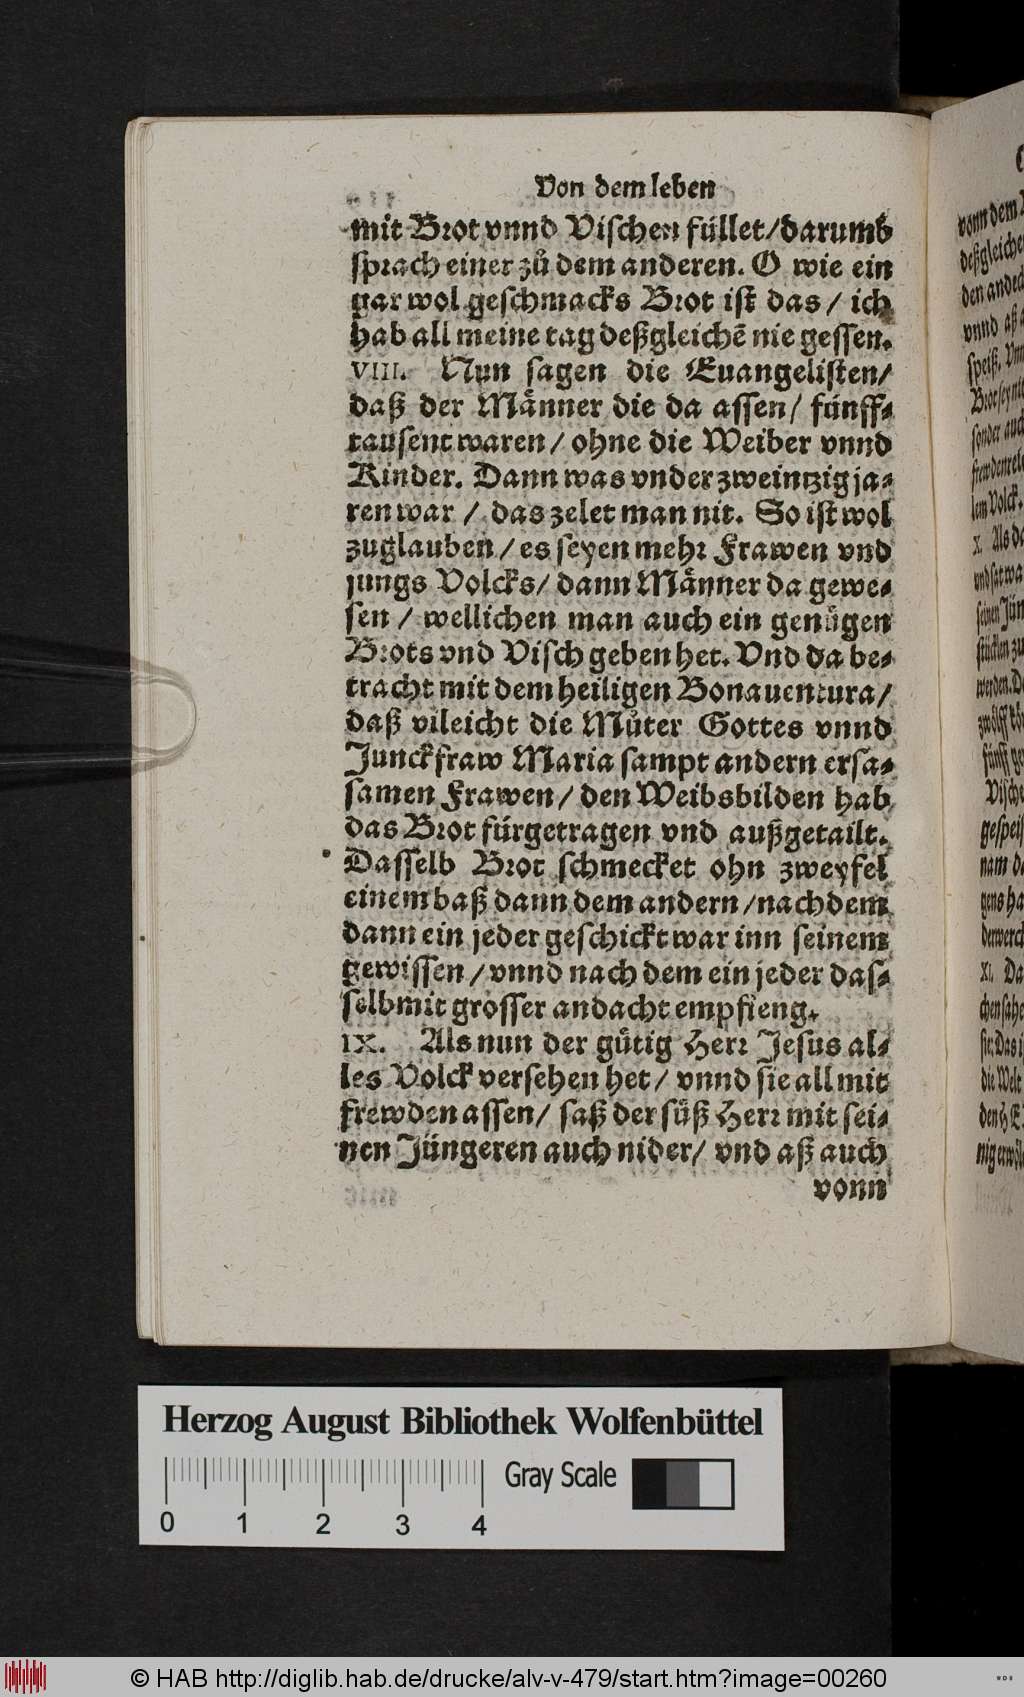 Von dem leben
mit Brot vnnd Vischen füllet/darumb
sprach einer zů dem anderen. O wie ein
gar wol geschmacks Brot ist das / ich
hab all meine tag deßgleichē nie gessen.
VIII. Nun sagen die Euangelisten/
daß der Männer die da assen/ fünff-
tausent waren / ohne die Weiber vnnd
Kinder. Dann was vnder zweintzig ja-
ren war / das zelet man nit. So ist wol
zuglauben / es seyen mehr Frawen vnd
jungs Volcks/ dann Männer da gewe-
sen / wellichen man auch ein genügen
Brots vnd Visch geben het. Vnd da be-
tracht mit dem heiligen Bonauentura/
daß vileicht die Můter Gottes vnnd
Junckfraw Maria sampt andern ersa-
samen Frawen / den Weibsbilden hab
das Brot fürgetragen vnd außgetailt.
Dasselb Brot schmecket ohn zweyfel
einem baß dann dem andern /nach dem
dann ein jeder geschickt war inn seinem
gewissen / vnnd nach dem ein jeder das-
selb mit grosser andacht empfieng.
IX. Als nun der gütig Herr Jesus al-
les Volck versehen het/ vnnd sie all mit
frewden assen/ saß der süß Herr mit sei-
nen Jüngeren auch nider/ vnd aß auch
vonn
vonn dem
deßgleiche
den ande
vnnd aß
speiß. Vn
sonder auch
lem Volck.
X. Als da
seinen Jün
stücklen zu
werden. D
zwölff kö
fünff ge
Vische
gespeis
nam d
gens ha
derwerch
XI. Da
chen sahe
sie: Das i
die Welt
den HE
nig erwöl
Herzog August Bibliothek Wolfenbüttel
Gray Scale
0 1 2 3 4
© HAB http://diglib.hab.de/drucke/alv-v-479/start.htm?image=00260